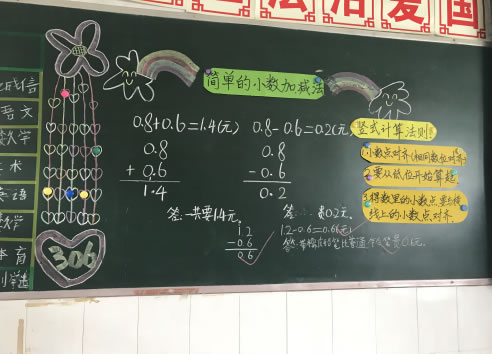 法治爱国
诚信
语文
数学
美术
英语
数学
体育
306
简单的小数加减法
0.8+0.6=1.4(元)
0.8
+ 0.6
1.4
答:一共要1.4元。
1.2
-0.6
0.6
0.8-0.6=0.2(元)
0.8
-0.6
0.2
1.2-0.6=0.6(元)
竖式计算法则
1.小数点对齐(相同数位对齐)
2.要从低位开始算起。
3.得数里的小数点要与横
线上的小数点对齐.